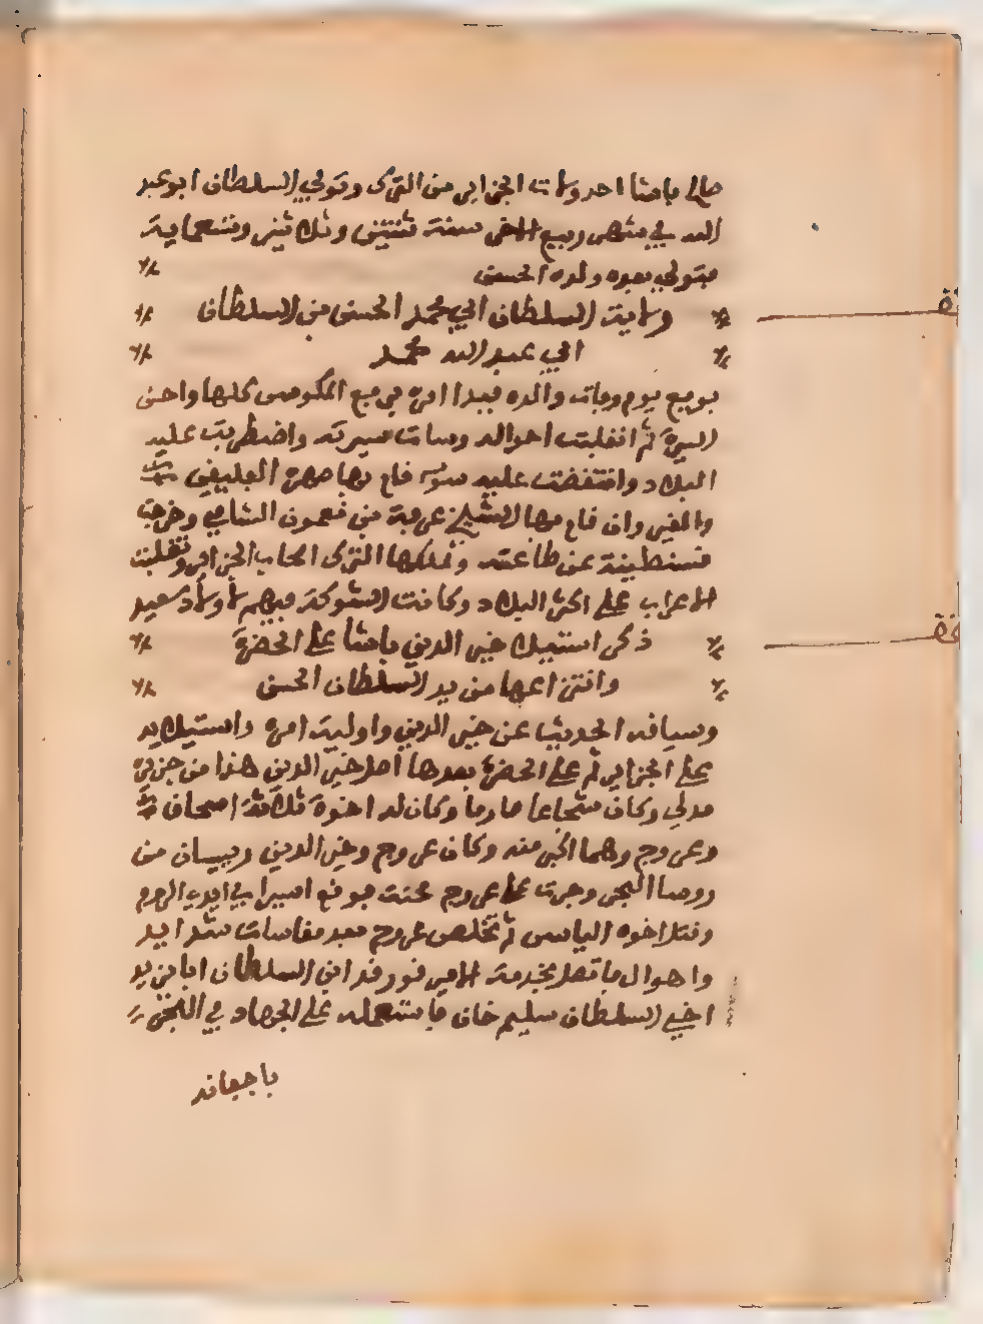 صالح باشا احد ولات الجزاير من الترك وتوفي السلطان ابو عبد
الله في شهر ربيع الاخر سنة ثنتين وثلاثين وتسعماية
فتولى بعده ولده الحسن
ولاية السلطان ابي محمد الحسن من السلطان
ابي عبد الله محمد
بويع يوم وفات والده فبدا امره برفع المكوس كلها واحسن
السيرة ثم انقلبت احواله وسات سيرته واضطربت عليه
البلاد وانتقضت عليه سوسة قام بها القليعي
والقيروان قام بها الشيخ عرفة من الشابي وخرجت
قسنطينة عن طاعته وتملكها الترك اصحاب الجزاير وتغلبت
الاعراب على اكثر البلاد وكانت الشوكة فيهم لأولاد سعيد
ذكر استيلاء خير الدين باشا على الحضرة
وانتزاعها من يد السلطان الحسن
وسياقة الحديث عن خير الدين واولية امره واستيلايه
على الجزاير ثم على الحضرة بعدها اصل خير الدين هذا من جزيرة
مدلي وكان شجاعا صارما وكان له اخوة ثلاثة اسحاق
وعروج وهما اكبر منه وكان عروج وخير الدين رييسان من
روسا البحر وجرت على عروج محنت فوقع اسيرا في ايدي الروم
وقتل اخوه الياس ثم تخلص عروج بعد مقاسات شدايد
واحوال فاتصل بخدمة الامير قورقد ابن السلطان ابا يزيد
اخي السلطان سليم خان فاستعمله على الجهاد في البحر
باجفانه